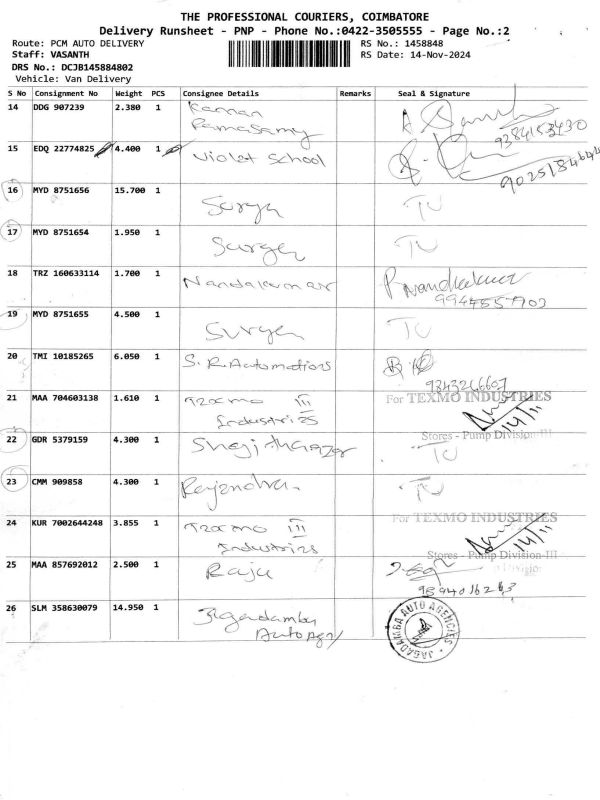 THE PROFESSIONAL COURIERS, COIMBATORE
Delivery Runsheet - PNP - Phone No.:0422-3505555 - Page No.:2
Route: PCM AUTO DELIVERY RS No.: 1458848
Staff: VASANTH RS Date: 14-Nov-2024
DRS No.: DCJB145884802
Vehicle: Van Delivery
S No Consignment No Weight PCS Consignee Details Remarks Seal & Signature
14 DDG 907239 2.380 1 Raman
Ramasamy 9384153430
15 EDQ 22774825 4.400 1 Violet School
16 MYD 8751656 15.700 1 Surya TU
17 MYD 8751654 1.950 1 Surya TU
18 TRZ 160633114 1.700 1 Nandakumar
19 MYD 8751655 4.500 1 Surya TU
20 TMI 10185265 6.050 1 S.R.Automotions
9843266607
21 MAA 704603138 1.610 1 III For TEXMO INDUSTRIES
Industries 14/11
Stores - Pump Division-III
22 GDR 5379159 4.300 1 TU
23 CMM 909858 4.300 1 Rajendra. TU
24 KUR 7002644248 3.855 1 III For TEXMO INDUSTRIES
Industries 14/11
Stores - Pump Division-III
25 MAA 857692012 2.500 1 Raju
26 SLM 358630079 14.950 1 Jagadamba
Auto Agy
JAGADAMBA AUTO AGENCIES